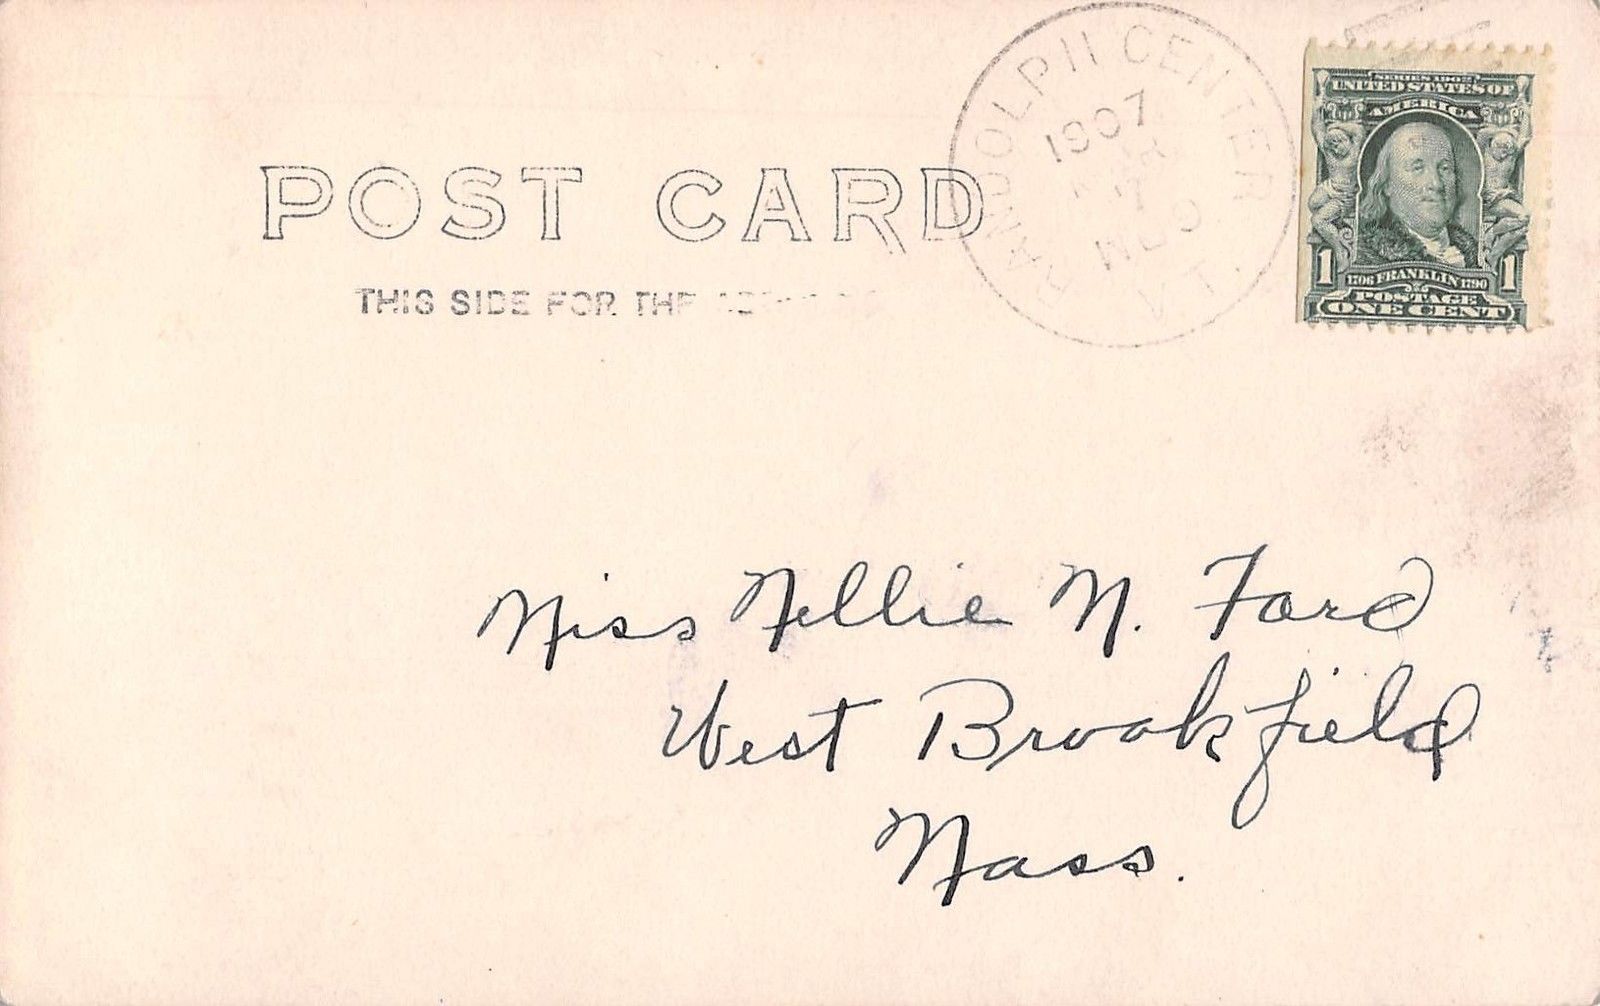 RANDOLPH CENTER
1907
VT.
SERIES 1902
UNITED STATES OF
AMERICA
1706 FRANKLIN 1790
1 1
POSTAGE
ONE CENT
POST CARD
THIS SIDE FOR THE
Miss Nellie M. Ford
West Brookfield
Mass.